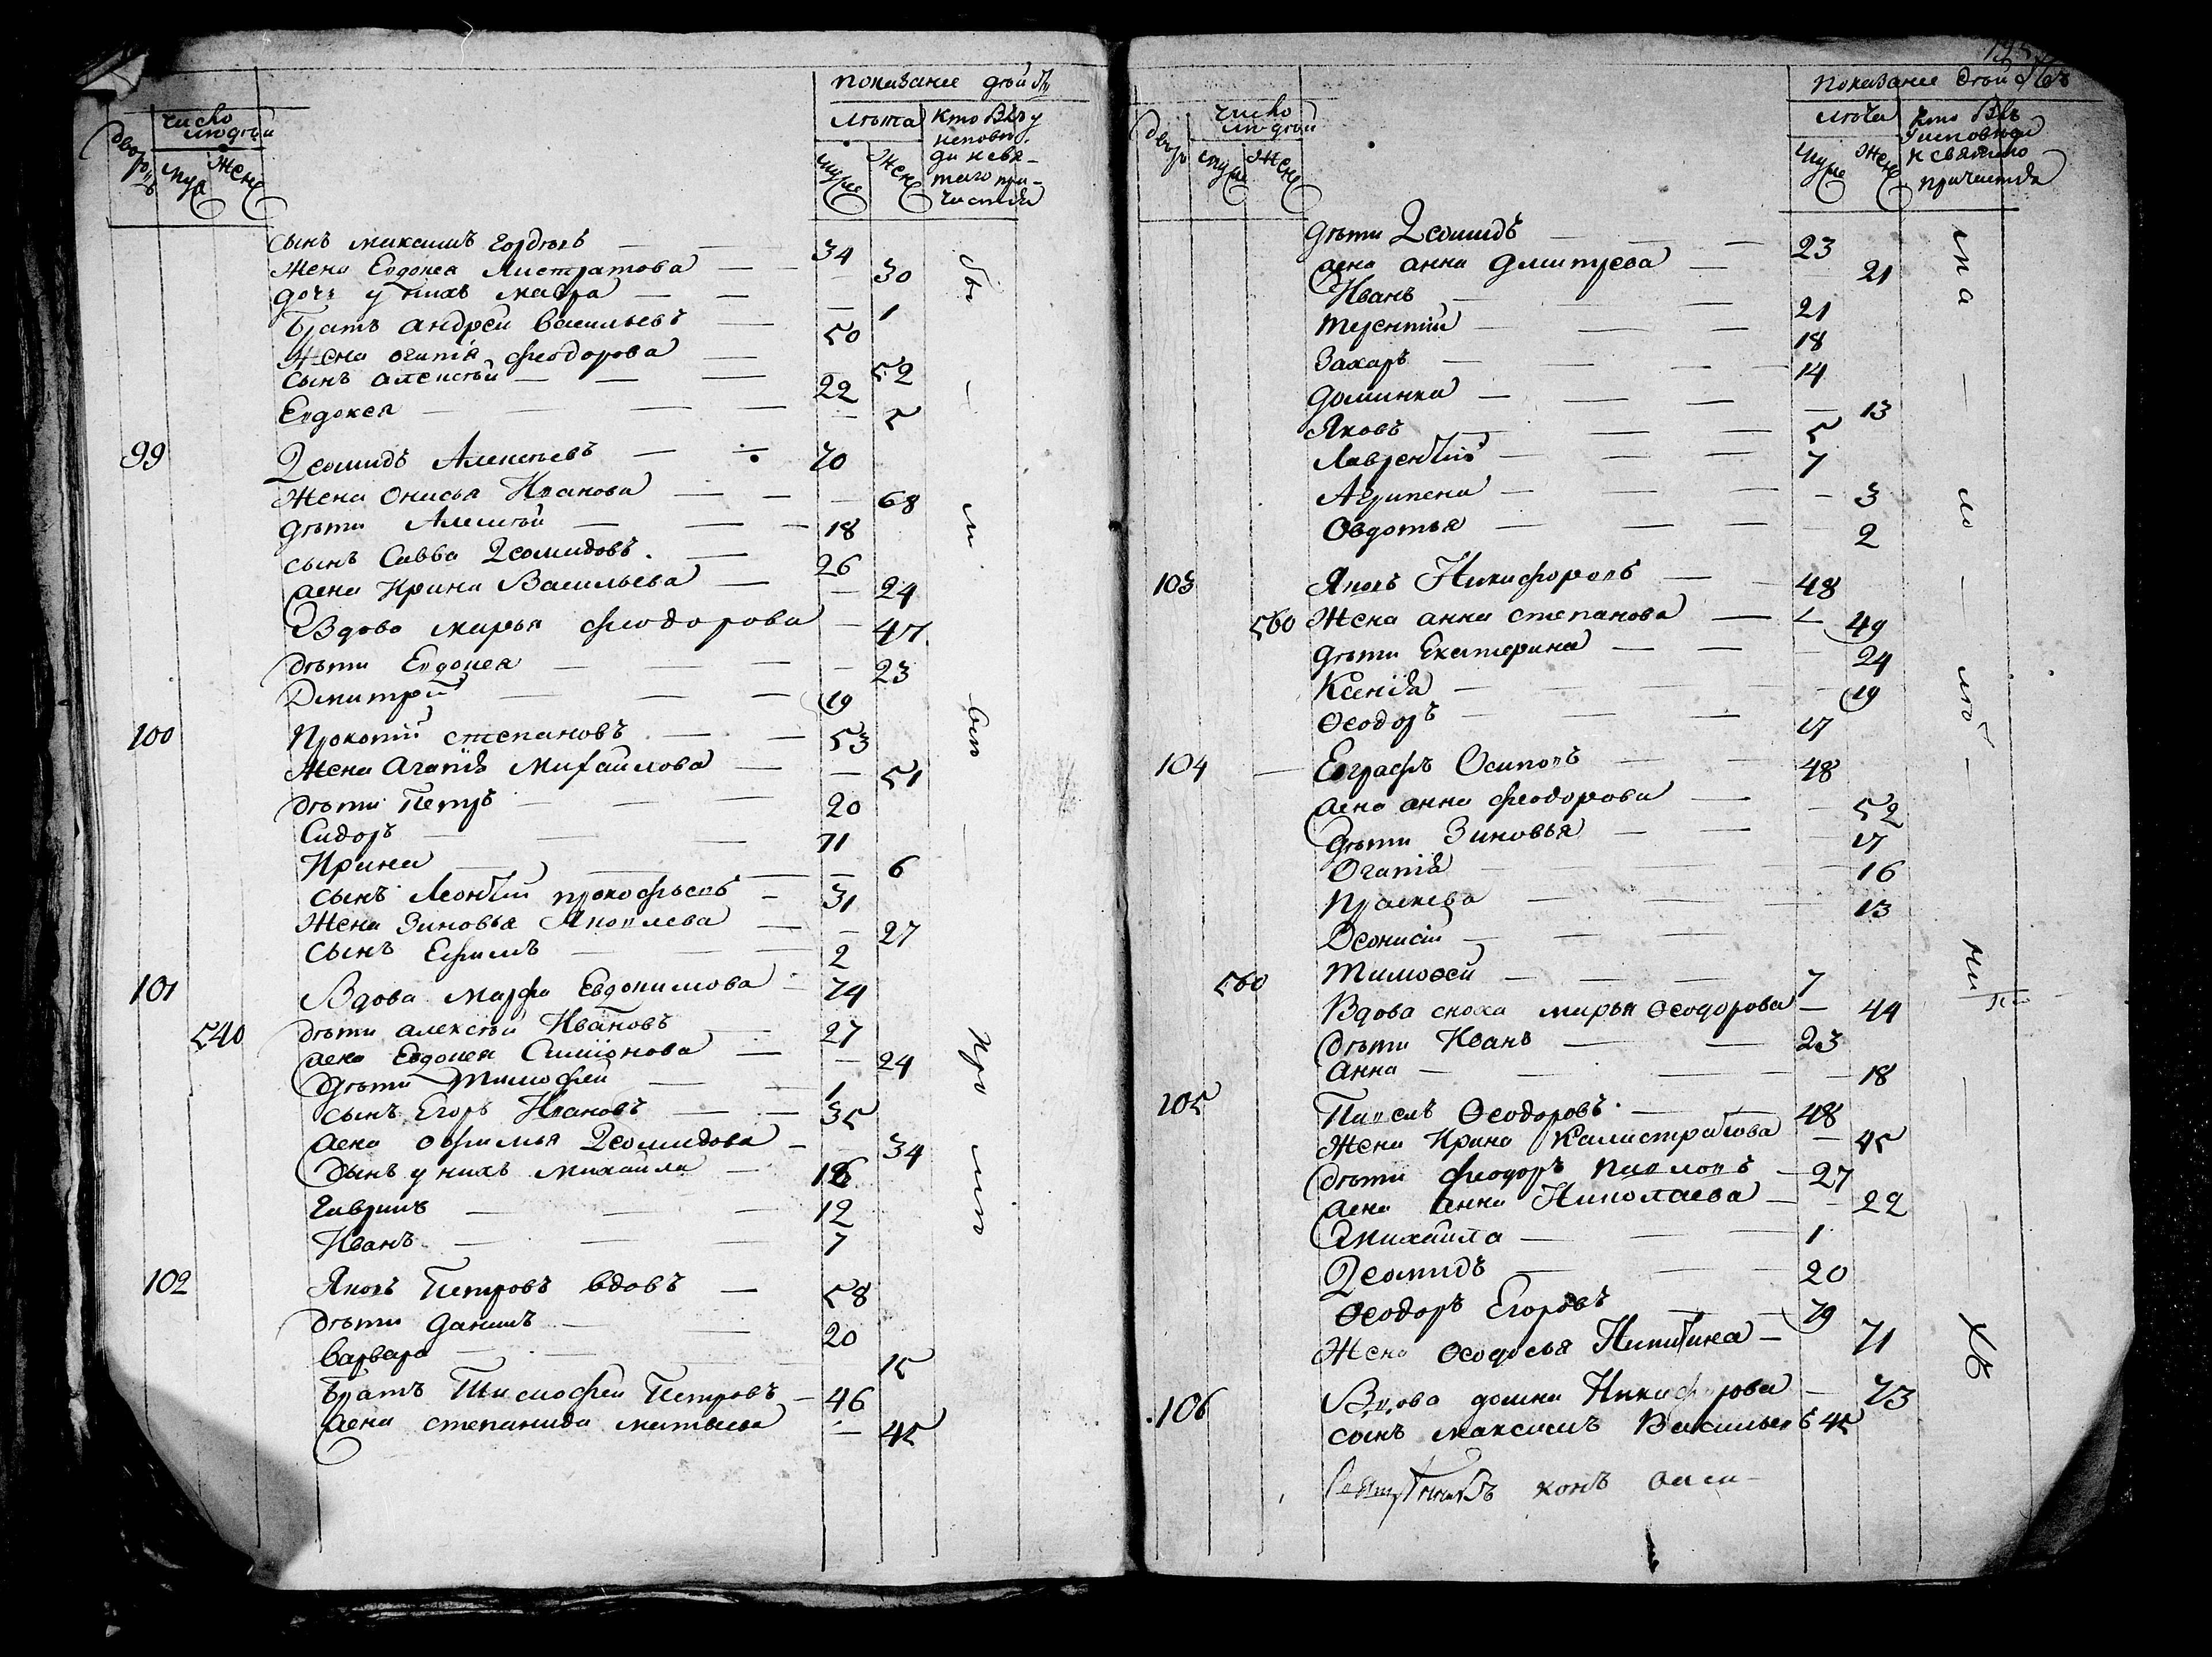 показание дѣй
число людей
лѣта
кто былъ у исповѣди и свя-таго при-частія
дворовъ
муж
жен
муже
жен
сынъ максимъ Гордѣевъ — 34
Жена Евдокея Листратова — 30
дочь у нихъ мавра — 1
Братъ андрей васильевъ — 50
Жена огапія феодорова — 52
сынъ алексѣй — 22
Евдокея — 5
99 Деомидъ Алексѣевъ — 70
Жена Онисья Иванова — 68
дѣти Алексѣй — 18
сынъ Савва Деомидовъ — 26
жена Ирина Васильева — 24
Вдова марья феодорова — 47
дѣти Евдокея — 23
Дмитрей — 19
100 Прокопій степановъ — 53
Жена Агапія михайлова — 51
дѣти Петръ — 20
Сидоръ — 11
Ирина — 6
сынъ Леонтій прокофьевъ — 31
Жена Зиновья Яковлева — 27
Сынъ Ефимъ — 2
101 Вдова марфа Евдокимова — 74
540 дѣти алексѣй Ивановъ — 27
жена Евдокея Симіонова — 24
дѣти Тимофей — 1
сынъ Егоръ Ивановъ — 35
жена офимья Деомидова — 34
сынъ у нихъ михайла — 16
Гаврилъ — 12
Иванъ — 7
102 Яковъ Петровъ вдовъ — 58
дѣти данилъ — 20
варвара — 15
братъ Тимофей Петровъ — 46
жена степанида матвѣева — 45
бы — ли
показание дѣйствъ
число людей
лѣта
кто былъ у исповѣди и святаго причастія
дворо
муже
жен
муже
жен
дѣти Деомидъ — 23
жена анна дмитрева — 21
Иванъ — 21
терентій — 18
Захаръ — 14
домника — 13
Яковъ — 5
Лаврентій — 7
Агрипена — 3
Овдотья — 2
103 Яковъ Никифоровъ — 48
560 Жена анна степанова — 49
дѣти Екатерина — 24
Ксенія — 19
Ѳеодоръ — 17
104 Евграфъ Осиповъ — 48
жена анна феодорова — 52
дѣти Зиновья — 17
Огапія — 16
Праскева — 13
Деонисій —
560 Тимоѳей — 7
Вдова сноха марья Ѳеодорова — 44
дѣти Иванъ — 23
Анна — 18
105 Павелъ Ѳеодоровъ — 48
Жена Ирина Калистратова — 45
дѣти феодоръ павловъ — 27
жена анна Николаева — 22
михайла — 1
Деомидъ — 20
Ѳеодоръ Егоровъ — 79
Жена Ѳеодосья Никитина — 71
106 Вдова домна Никифорова — 73
сынъ максимъ Васильевъ 45